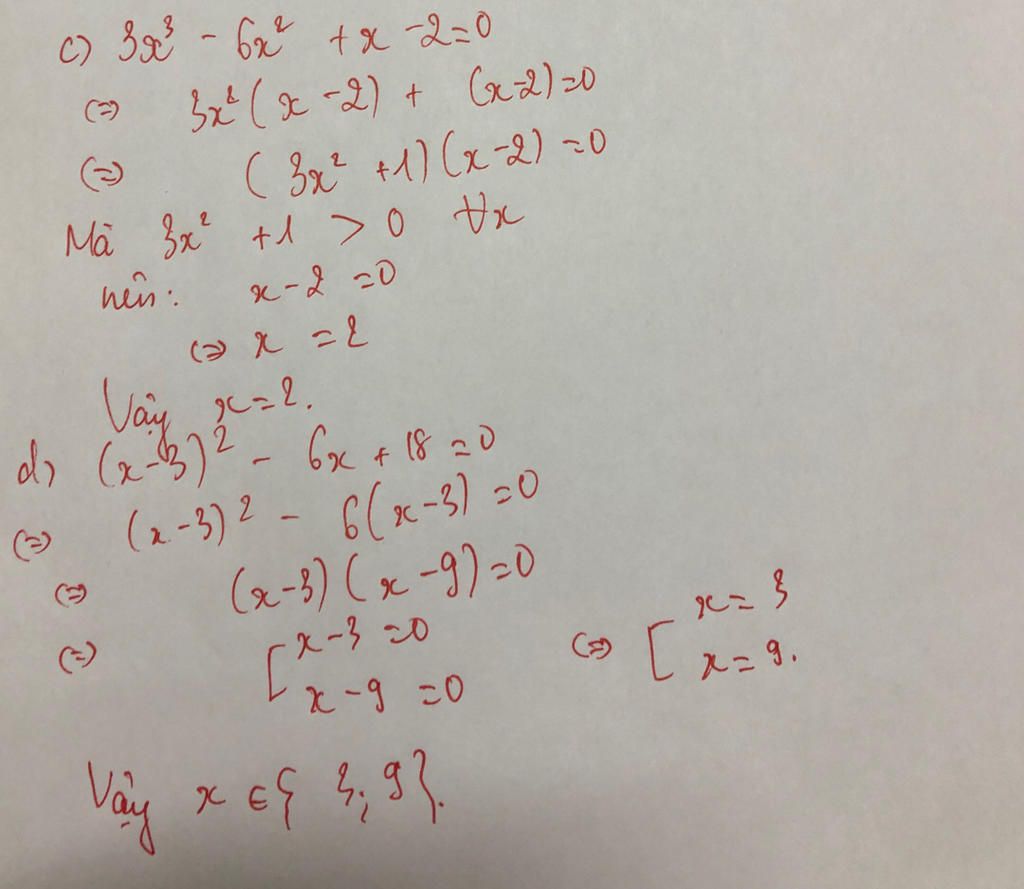 c) 3x³ - 6x² + x - 2 = 0
⇔ 3x² (x - 2) + (x - 2) = 0
⇔ (3x² + 1) (x - 2) = 0
Mà 3x² + 1 > 0 ∀x
nên: x - 2 = 0
⇔ x = 2
Vậy x = 2.
d) (x - 3)² - 6x + 18 = 0
⇔ (x - 3)² - 6(x - 3) = 0
⇔ (x - 3) (x - 9) = 0
⇔ [ x - 3 = 0 ⇔ [ x = 3
x - 9 = 0 x = 9.
Vậy x ∈ { 3; 9 }.